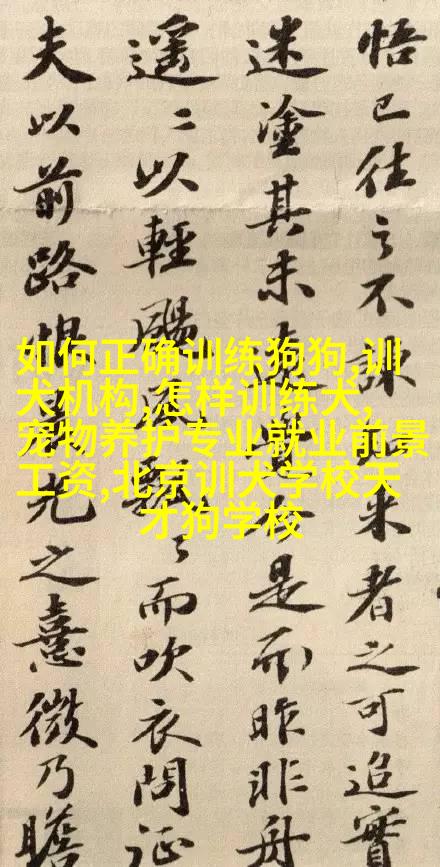 悟已往之不諫来者之可追實
迷塗其未是而昨非舟
遥〻以輕颺而吹衣問征
夫以前路光之熹微乃瞻
如何正确训练狗狗,训
犬机构,怎样训练犬,
宠物养护专业就业前景
工资,北京训犬学校天
才狗学校